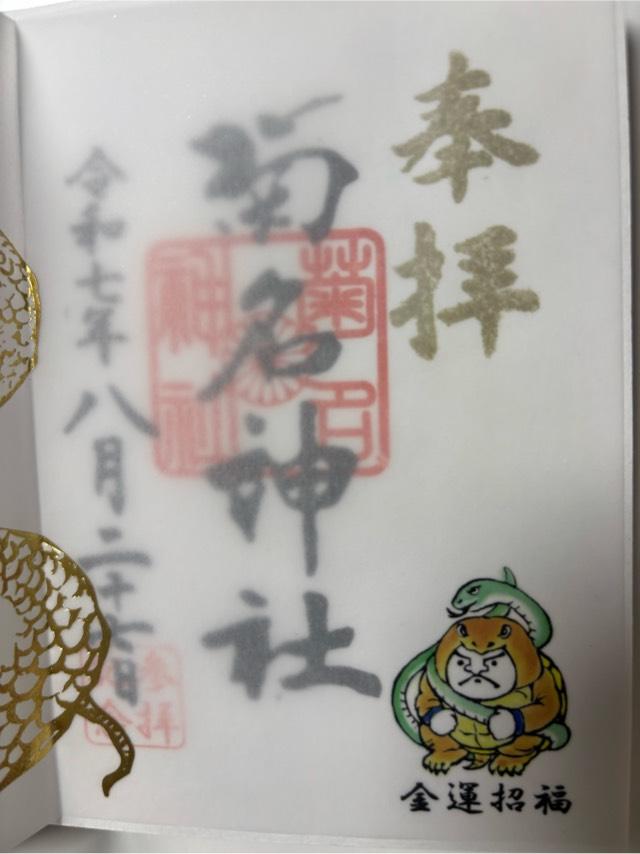 奉拝
菊名神社
菊名
神社
令和七年八月二十六日
参拝
金運招福